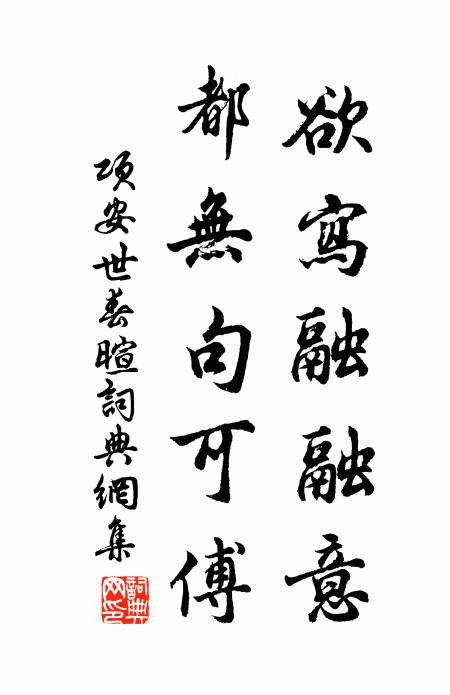 欲寫融融意
都無句可傅
項安世春暄詞典網集
詞典網印